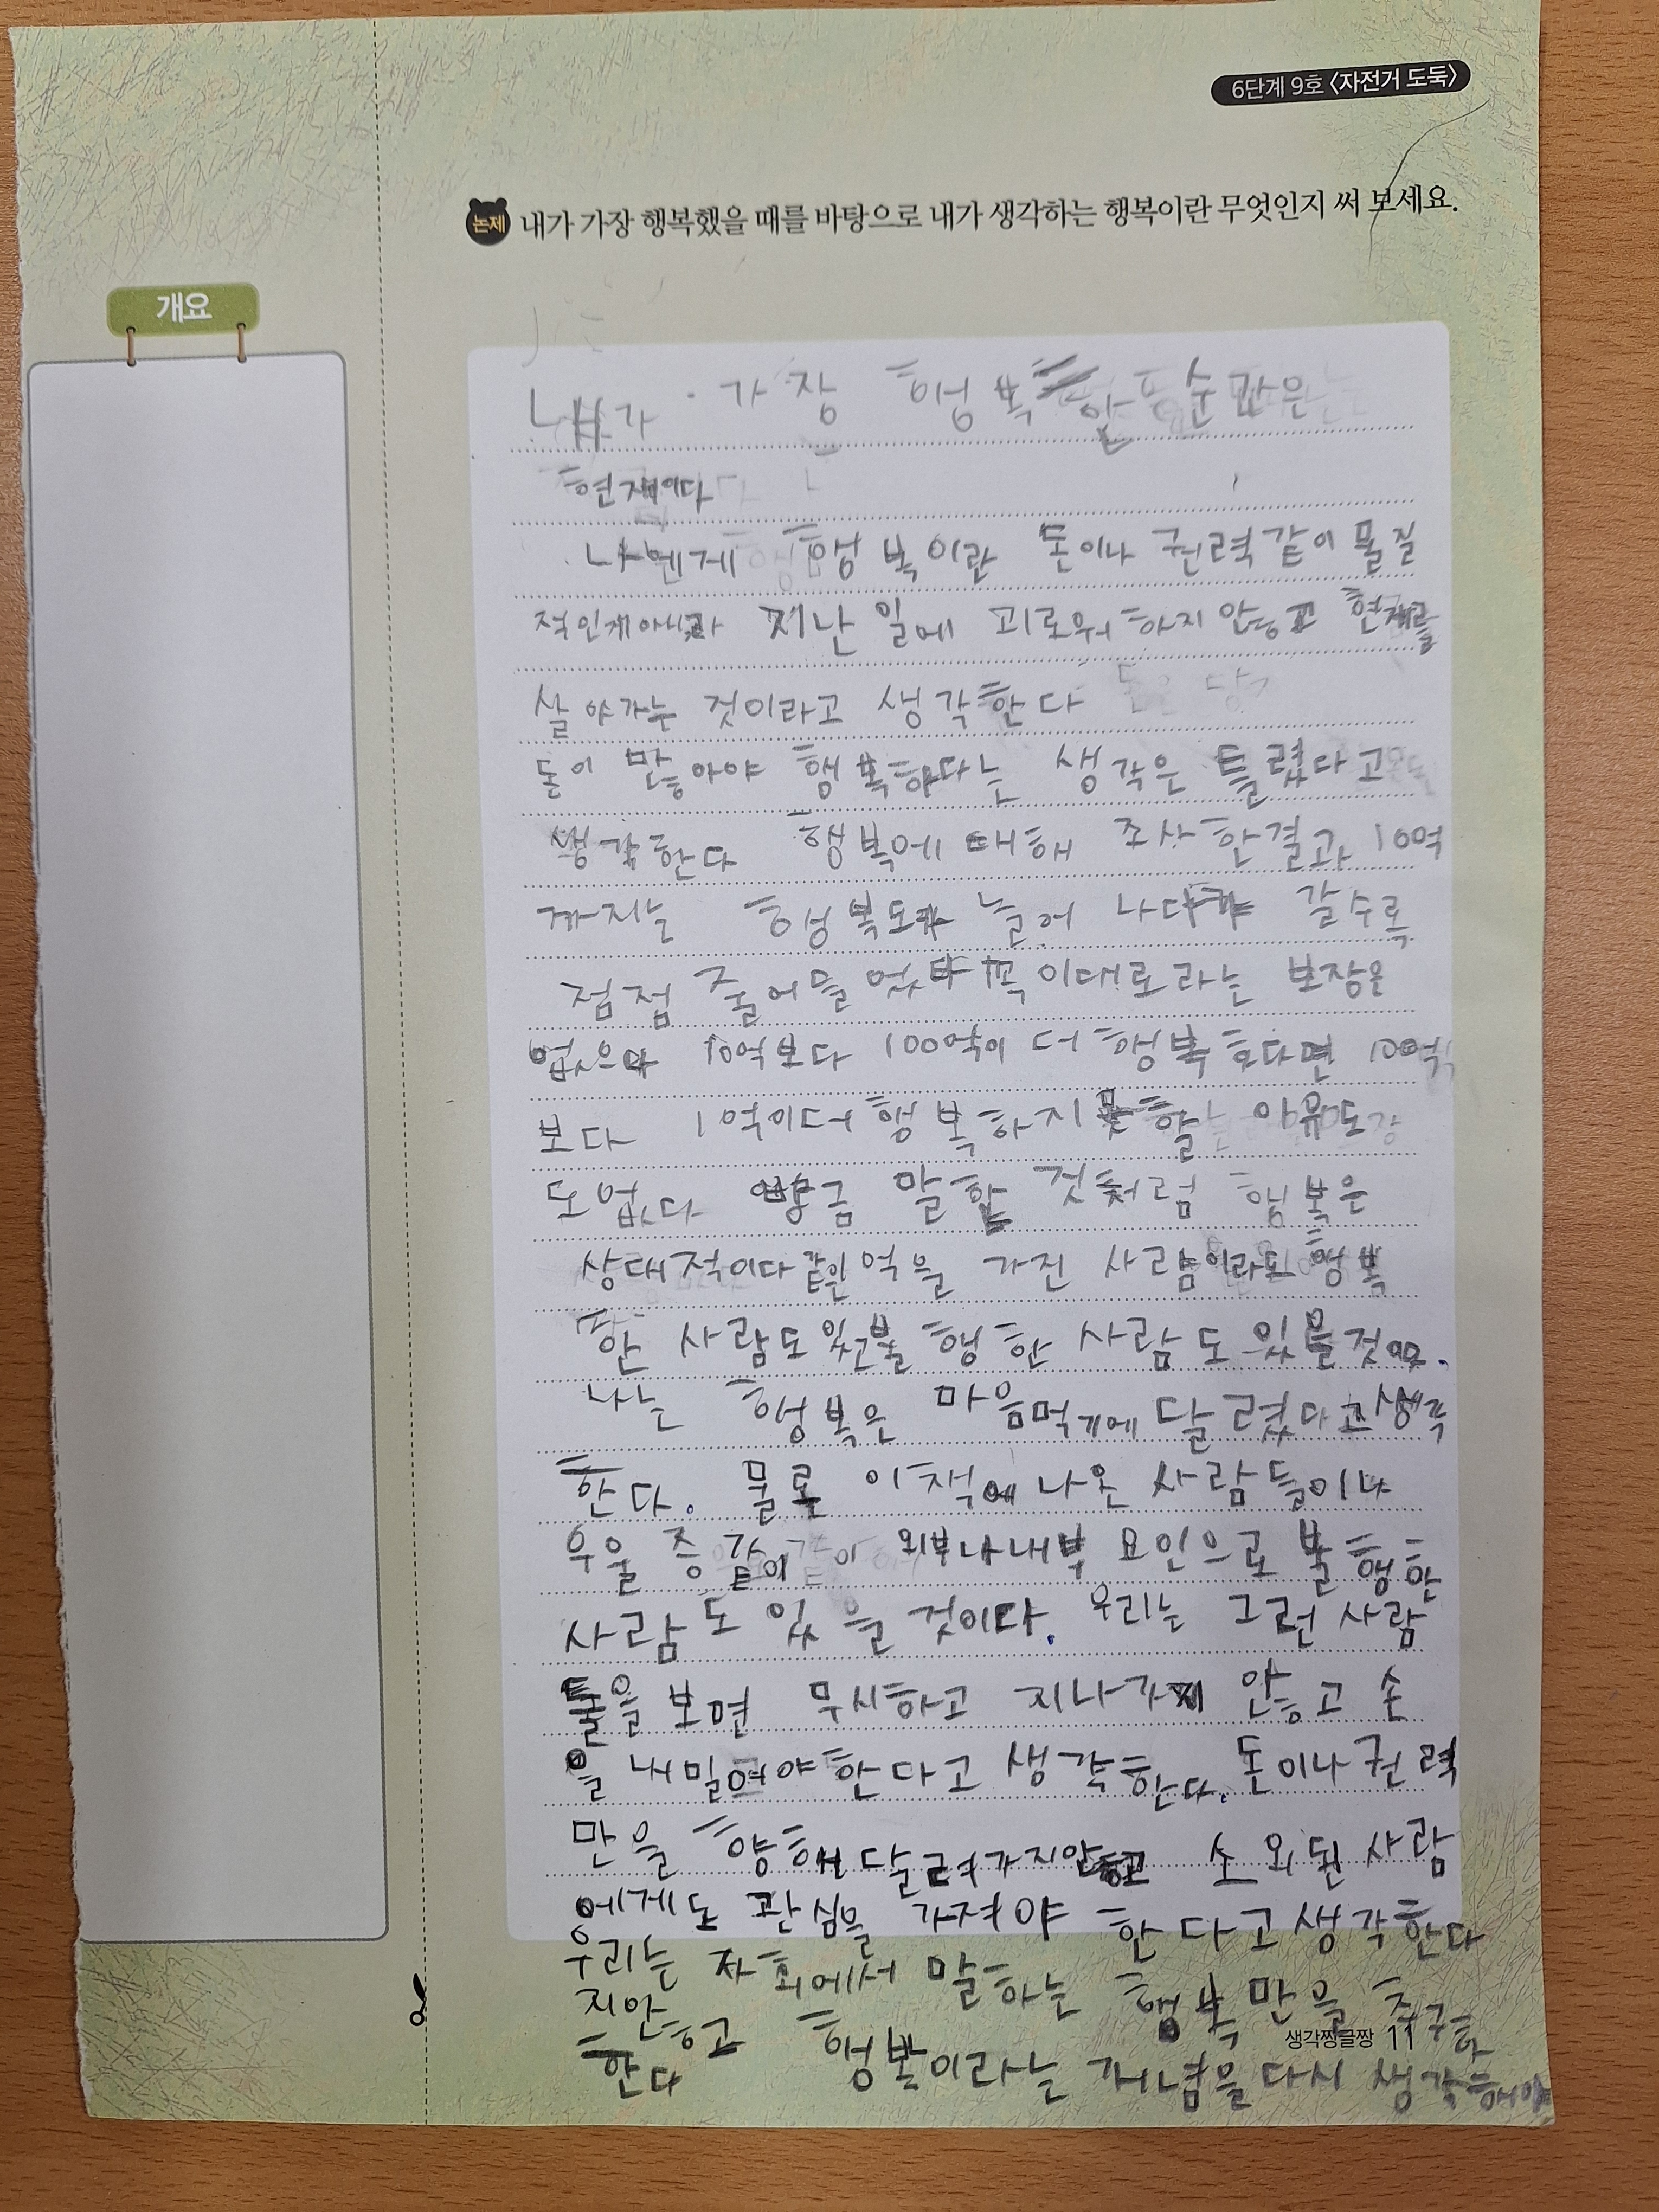 6단계 9호 〈자전거 도둑〉
논제 내가 가장 행복했을 때를 바탕으로 내가 생각하는 행복이란 무엇인지 써 보세요.
개요
내가 가장 행복한 순간은
현재이다
나에게 행복이란 돈이나 권력같이 물질
적인게아니라 지난 일에 괴로워 하지 안흥고 현재를
살아가는 것이라고 생각한다
돈이 많아야 행복하다는 생각은 틀렸다고
생각한다 행복에 대해 조사한결과 10억
까지는 행복도가 늘어 나다가 갈수록
점점 줄어들었다 꼭 이대로라는 보장은
없으나 10억보다 100억이 더 행복하다면 100억
보다 1억이더 행복하지못할 이유도
도없다 방금 말한 것처럼 행복은
상대적이다 같은 억을 가진 사람이라도 행복
한 사람도있고불행한 사람도 있을것이다.
나는 행복은 마음먹기에 달렸다고생각
한다. 물론 이책에 나온 사람들이나
우울증 같이 외부나내부 요인으로 불행한
사람도 있을 것이다. 우리는 그런 사람
들을 보면 무시하고 지나가지 않고 손
을 내밀어야한다고 생각한다. 돈이나권력
만을 향해 달려가지않고 소외된 사람
에게도 관심을 가져야 한다고생각한다
우리는 사회에서 말하는 행복만을 추구하
지않고 행복이라는 개념을다시 생각해야
한다
생각찡글짱 11